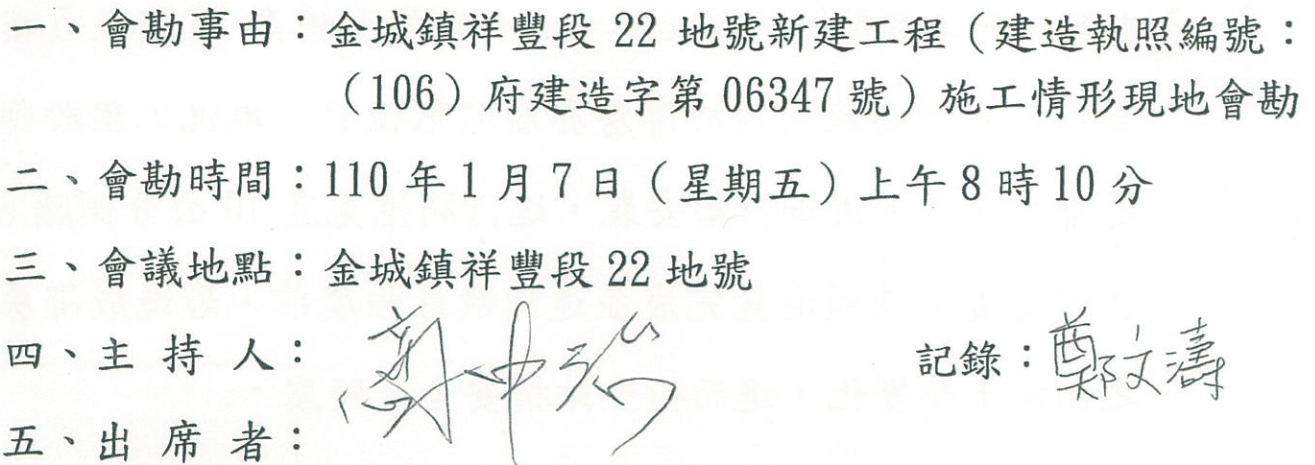 一、會勘事由：金城鎮祥豐段 22 地號新建工程（建造執照編號：
（106）府建造字第 06347 號）施工情形現地會勘
二、會勘時間：110 年 1 月 7 日（星期五）上午 8 時 10 分
三、會議地點：金城鎮祥豐段 22 地號
四、主 持 人： 記錄：鄭文濤
五、出 席 者：